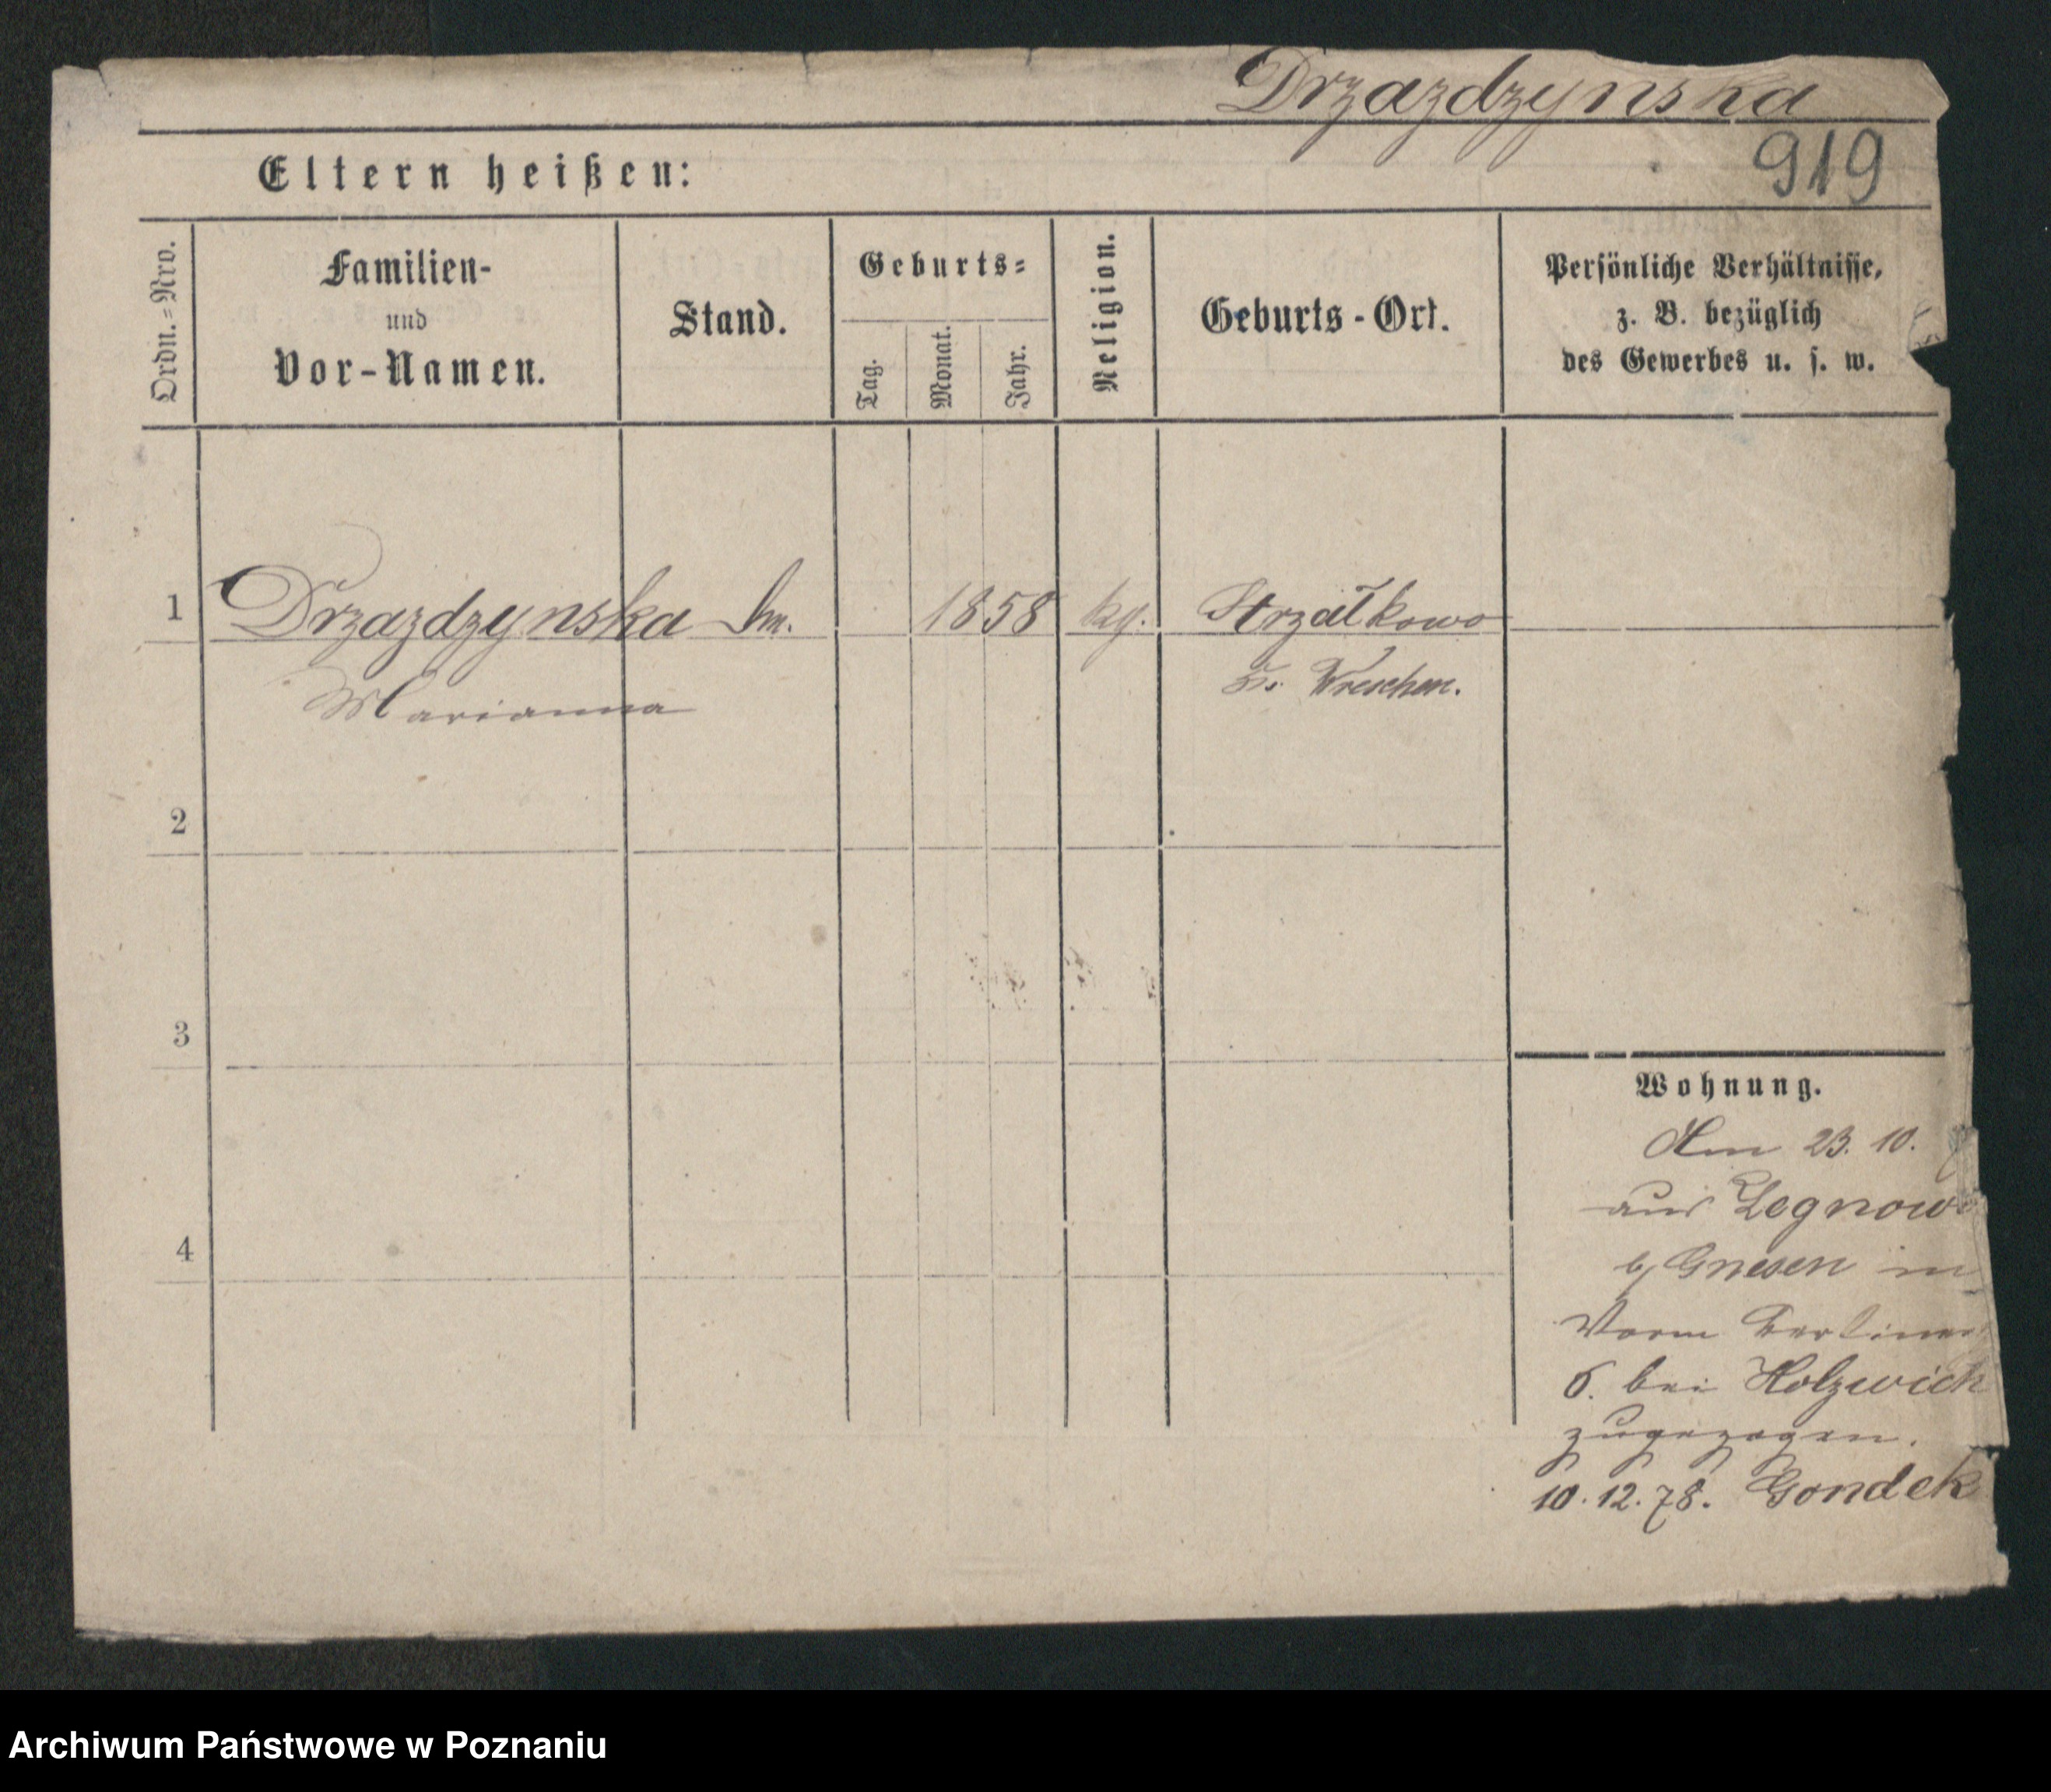 Drzazdzynska
919
Eltern heißen:
Ordn.=Nro.
Familien-
und
Vor-Namen.
Stand.
Geburts=
Tag.
Monat.
Jahr.
Religion.
Geburts-Ort.
Persönliche Verhältnisse,
z. B. bezüglich
des Gewerbes u. s. w.
1 Drzazdzynska 1858 Strzałkowo
Marianna
Wreschen.
2
3
4
Wohnung.
Am 23. 10.
aus Legnowo
b/ Gnesen in
Vorm Berliner
6. bei Holzwich
zugezogen.
10.12.78. Gondek
Archiwum Państwowe w Poznaniu